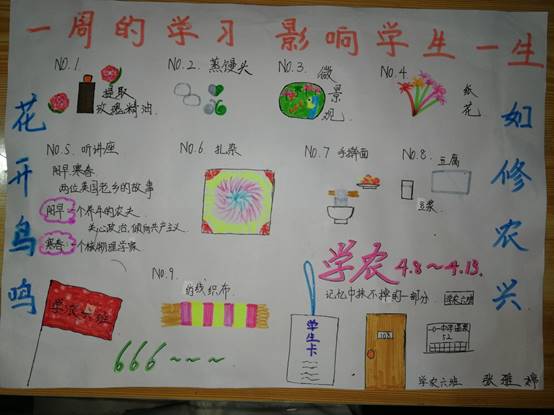 一周的学习 影响学生一生
花开鸟鸣
如修农兴
NO.1.
提取
玫瑰精油
NO.2. 蒸馒头
NO.3. 微景观
NO.4.
纸花
NO.5. 听讲座
阳早寒春
两位美国老乡的故事
阳早:一个养牛的农夫
关心政治,倾向共产主义
寒春:一个核物理学家
NO.6. 扎染
NO.7 手擀面
NO.8. 豆腐
豆浆
学农 4.8~4.13.
记忆中抹不掉的一部分
学农六班
NO.9.
纺线织布
学农六班
666~~~
学生卡
学农六班